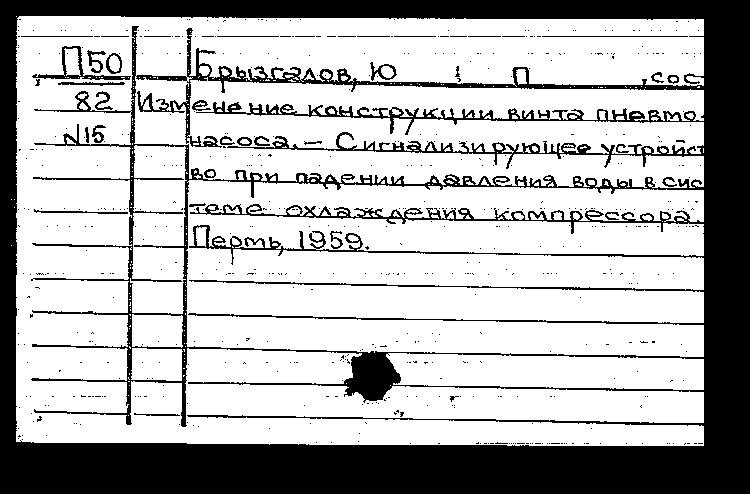 П50 Брызгалов, Ю П , сос
82 Изменение конструкции винта пневмо-
N15 насоса. – Сигнализирующее устройст
во при падении давления воды в сис
теме охлаждения компрессора.
Пермь, 1959.